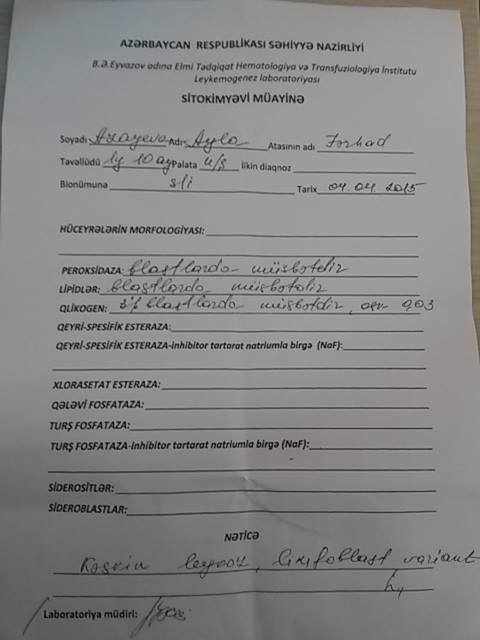 AZƏRBAYCAN RESPUBLİKASI SƏHİYYƏ NAZİRLİYİ
B.Ə.Eyvazov adına Elmi Tədqiqat Hematologiya və Transfuziologiya İnstitutu
Leykemogenez laboratoriyası
SİTOKİMYƏVİ MÜAYİNƏ
Soyadı Axayeva Adı Ayla Atasının adı Fərhad
Təvəllüdü 1y 10 ay Palata u/ş İlkin diaqnoz
Bionümunə s/i Tarix 04.04.2015
HÜCEYRƏLƏRİN MORFOLOGİYASI:
PEROKSİDAZA: blastlarda müsbətdir
LİPİDLƏR: blastlarda müsbətdir
QLİKOGEN: blastlarda müsbətdir, 0,03
QEYRİ-SPESİFİK ESTERAZA:
QEYRİ-SPESİFİK ESTERAZA-inhibitor tartarat natriumla birgə (NaF):
XLORASETAT ESTERAZA:
QƏLƏVİ FOSFATAZA:
TURŞ FOSFATAZA:
TURŞ FOSFATAZA-inhibitor tartarat natriumla birgə (NaF):
SİDEROSİTLƏR:
SİDEROBLASTLAR:
NƏTİCƏ
Kəskin leykoz, limfoblast variant
Laboratoriya müdiri: